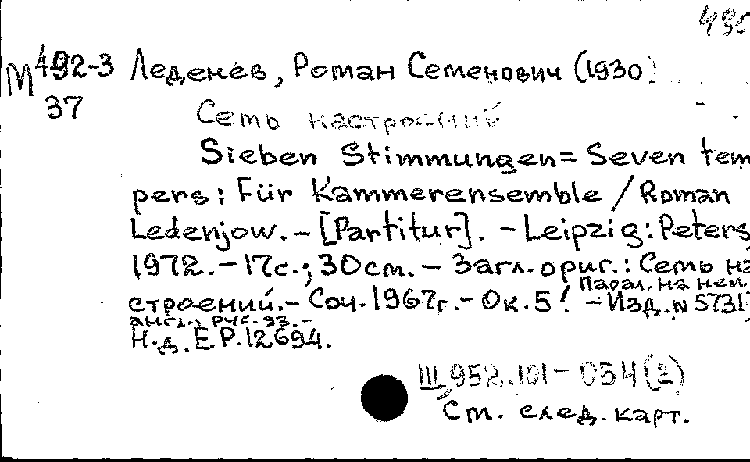 495
М 492-3 Леденёв, Роман Семенович (1930
37
Семь настроений
Sieben Stimmungen = Seven tem
pers: Für Kammerensemble / Roman
Ledenjow. - [Partitur]. - Leipzig: Peters,
1972. - 17с.; 30см. - Загл. ориг.: Семь на
строений. - Соч. 1967г. - Ок. 5! - Изд. N 5731
Парал. на нем.
англ., рус. яз. -
Н.д. E.P. 12694.
III, 952.101 - 054(2)
См. след. карт.